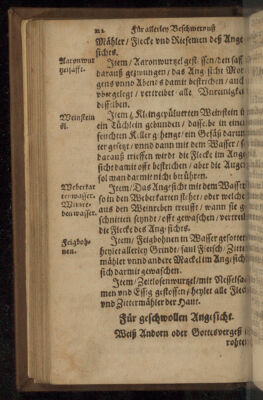 Für allerley Beschwernuß
Mähler / Flecke vnd Riesemen deß Ange
sichts.
Aaronwur
tzelsafft.
Item / Aaronwurtzel gestossen / den saff
darauß gezwungen / das Angesicht Mor
gens vnnd Abends damit bestrichen / auch
vbergelegt / vertreibet alle Vnreinigkei
desselben.
Weinstein
öl.
Item / Kleingepülverten Weinstein in
ein Tüchlein gebunden / dasselbe in eine
feuchten Keller gehenge / ein Gefäß darun
ter gesetzt / vnnd dann mit dem Wasser / so
darauß trieffen wird / die Fleck im Ange
sicht damit offt bestrichen / aber die Augen
sol man darmit nicht berühren.
Weberkar
tenwasser.
Weinre-
benwasser.
Item / Das Angesicht mit dem Wasser
so in den Weberkarten stehet / oder welche
aus den Weinreben treufft / wann sie ge
schnitten seyndt / offt gewaschen / vertreib
die Flecke des Angesichts.
Feigboh-
nen.
Item / Feigbohnen in Wasser gesotten
heylet allerley Grindt / faul Fleisch / Zitte
mähler vnnd andere Mackel im Angesich
sich darmit gewaschen.
Item / Zeitlosenwurtzel / mit Nesselsaa
men vnd Essig gestossen / heylet alle Fleck
vnd Zittermähler der Haut.
Für geschwollen Angesicht.
Weiß Andorn oder Gottsvergeß i
rohten